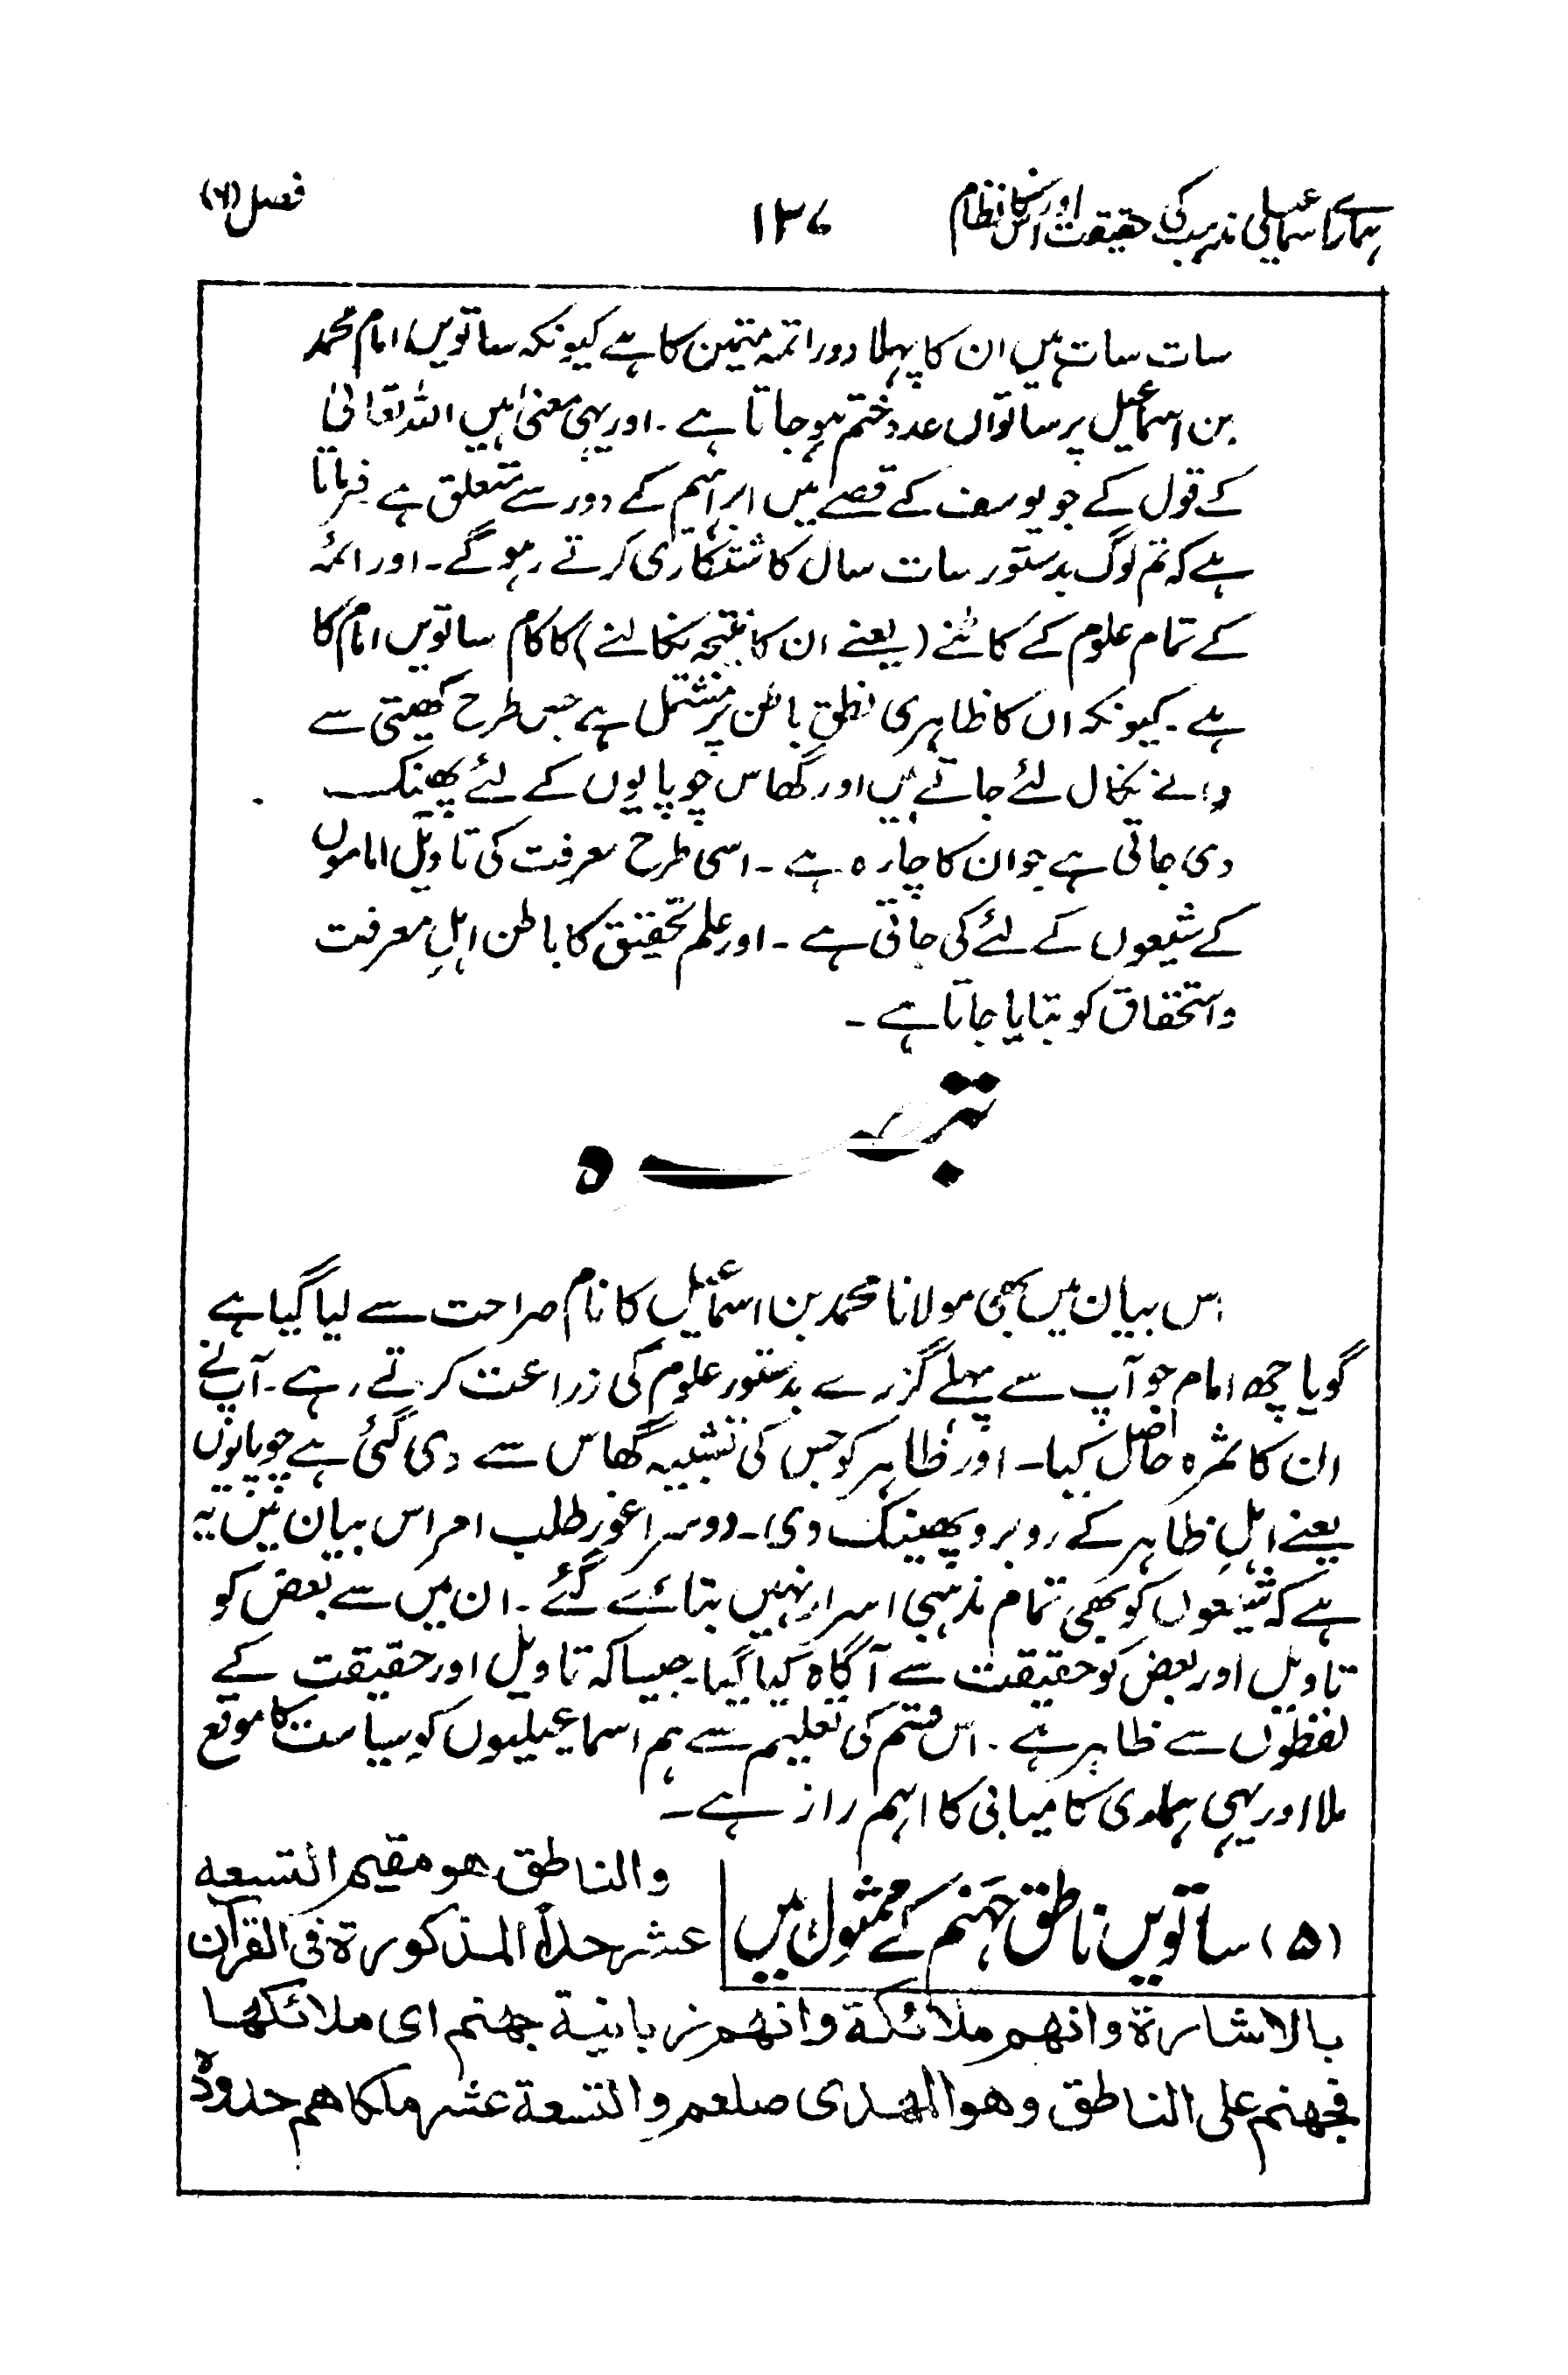 ہمارے اسماعیلی مذہب کی حقیقت اور اس کا نظام ۱۳۷ فصل (۶)
سات سات ہیں ان کا پہلا دور ائمہ متمین کا ہے کیونکہ ساتویں امام محمد
بن اسماعیل پر ساتواں عدد ختم ہو جاتا ہے ۔ اور یہی معنیٰ ہیں اللہ تعالیٰ
کے قول کے جو یوسف کے قصے میں ابراہیم کے دور سے متعلق ہے فرماتا
ہے کہ تم لوگ بدستور سات سال کاشتکاری کرتے رہو گے ۔ اور ائمہ
کے تمام علوم کے کاٹنے (یعنے ان کا نتیجہ نکالنے) کا کام ساتویں امام کا
ہے ۔ کیونکہ ان کا ظاہری نطق باطن پر مشتمل ہے جس طرح کھیتی سے
دانے نکال لئے جاتے ہیں اور گھاس چوپایوں کے لئے پھینک
دی جاتی ہے جو ان کا چارہ ہے ۔ اسی طرح معرفت کی تاویل اماموں
کے شیعوں کے لئے کی جاتی ہے ۔ اور علم تحقیق کا باطن اہلِ معرفت
واستحقاق کو بتایا جاتا ہے ۔
تبصرہ
اس بیان میں بھی مولانا محمد بن اسماعیل کا نام صراحت سے لیا گیا ہے
گویا چھ امام جو آپ سے پہلے گزرے بدستور علوم کی زراعت کرتے رہے ۔ آپ نے
ان کا ثمرہ حاصل کیا ۔ اور ظاہر کو جس کی تشبیہ گھاس سے دی گئی ہے چوپایوں
یعنے اہلِ ظاہر کے روبرو پھینک دی ۔ دوسرا غور طلب امر اس بیان میں یہ
ہے کہ شیعوں کو بھی تمام مذہبی اسرار نہیں بتائے گئے ۔ ان میں سے بعض کو
تاویل اور بعض کو حقیقت سے آگاہ کیا گیا ۔ جیسا کہ تاویل اور حقیقت کے
لفظوں سے ظاہر ہے ۔ اس قسم کی تعلیم سے ہم اسماعیلیوں کو سیاست کا موقع
ملا اور یہی ہماری کامیابی کا اہم راز ہے ۔
(۵) ساتویں ناطق جہنم کے ممثول ہیں
والناطق هو مقيم التسعه
عشر حدًا المذكورة فى القرآن
بالاشارة وانهم ملائكة وانهم زبانية جهنم اى ملائكها
فجهنم على الناطق وهو المهدى صلعم والتسعة عشر ملكا هم حدوده